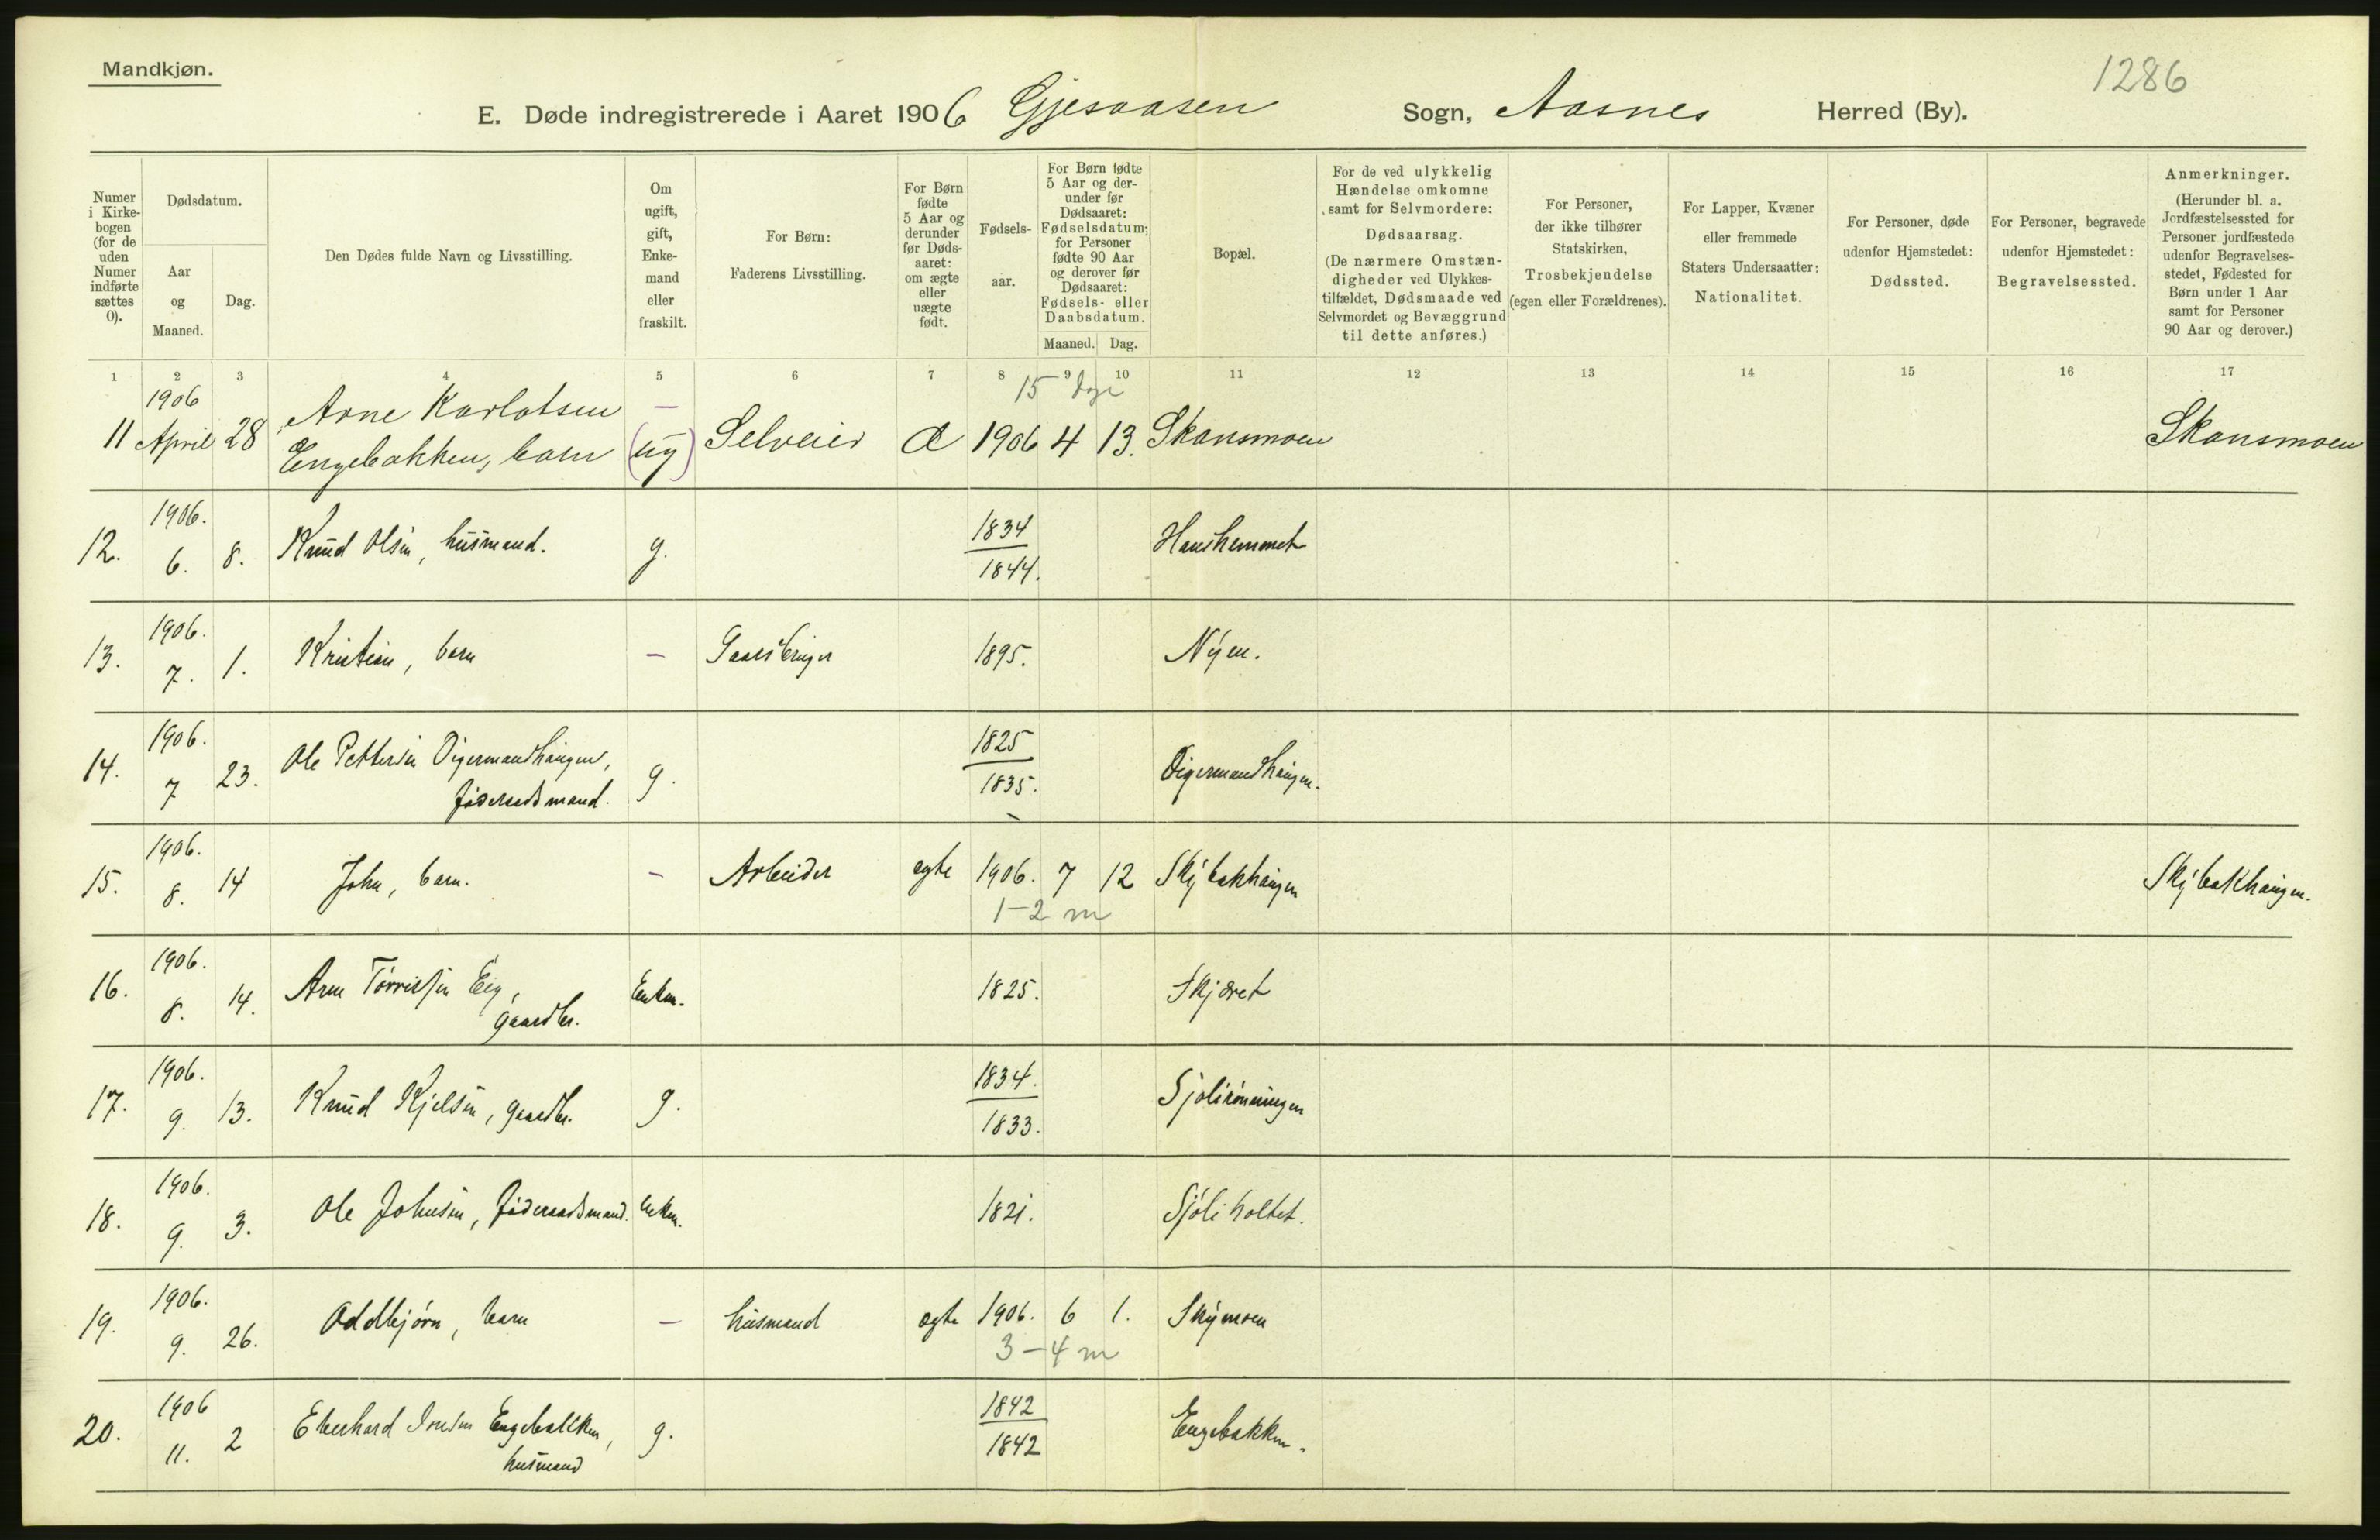 Mandkjøn.
1286
E. Døde indregistrerede i Aaret 1906 Gjesaasen Sogn, Aasnes Herred (By).
Numer i Kirkebogen (for de uden Numer indførte sættes 0).
Dødsdatum.
Aar og Maaned.
Dag.
Den Dødes fulde Navn og Livsstilling.
Om ugift, gift, Enkemand eller fraskilt.
For Børn: Faderens Livsstilling.
For Børn fødte 5 Aar og derunder før Dødsaaret: om ægte eller uægte født.
Fødselsaar.
For Børn fødte 5 Aar og derunder før Dødsaaret: Fødselsdatum; for Personer fødte 90 Aar og derover før Dødsaaret: Fødsels- eller Daabsdatum.
Maaned. Dag.
Bopæl.
For de ved ulykkelig Hændelse omkomne samt for Selvmordere: Dødsaarsag. (De nærmere Omstændigheder ved Ulykkestilfældet, Dødsmaade ved Selvmordet og Bevæggrund til dette anføres.)
For Personer, der ikke tilhører Statskirken, Trosbekjendelse (egen eller Forældrenes).
For Lapper, Kvæner eller fremmede Staters Undersaatter: Nationalitet.
For Personer, døde udenfor Hjemstedet: Dødssted.
For Personer, begravede udenfor Hjemstedet: Begravelsessted.
Anmerkninger. (Herunder bl. a. Jordfæstelsessted for Personer jordfæstede udenfor Begravelsesstedet, Fødested for Børn under 1 Aar samt for Personer 90 Aar og derover.)
1 2 3 4 5 6 7 8 9 10 11 12 13 14 15 16 17
1906 Arne Karlotsen — 15 dage
11 April 28 Engebakken, barn (ug) Selveier Æ 1906 4 13. Skansmoen Skansmoen
1906. 1834
12. 6. 8. Knud Olsen, husmand. g. 1844. Hanshemmet
1906.
13. 7. 1. Kristian, barn — Gaardbruger 1895. Nyen.
1906. 1825
14. 7 23. Ole Pettersen Digermandhaugen, føderaadsmand. g. 1835. Digermandhaugen.
1906.
15. 8. 14 John, barn. — Arbeider egte 1906. 7 12 Skybakhaugen Skybakhaugen.
1-2 m
1906.
16. 8. 14. Arne Torrissen Eig, gaardbr. Enkm. 1825. Skjæret
1906. 1834.
17. 9. 13. Knud Kjelsen, gaardbr. g. 1833. Sjolirønningen
1906.
18. 9. 3. Ole Johnsen, føderaadsmand. enkm. 1821. Sjøliholtet.
1906.
19. 9. 26. Oddbjørn, barn — husmand ægte 1906. 6 1. Skymoen
3-4 m
1906 1842
20. 11. 2 Eberhard Engebakken, husmand g. 1842 Engebakken.